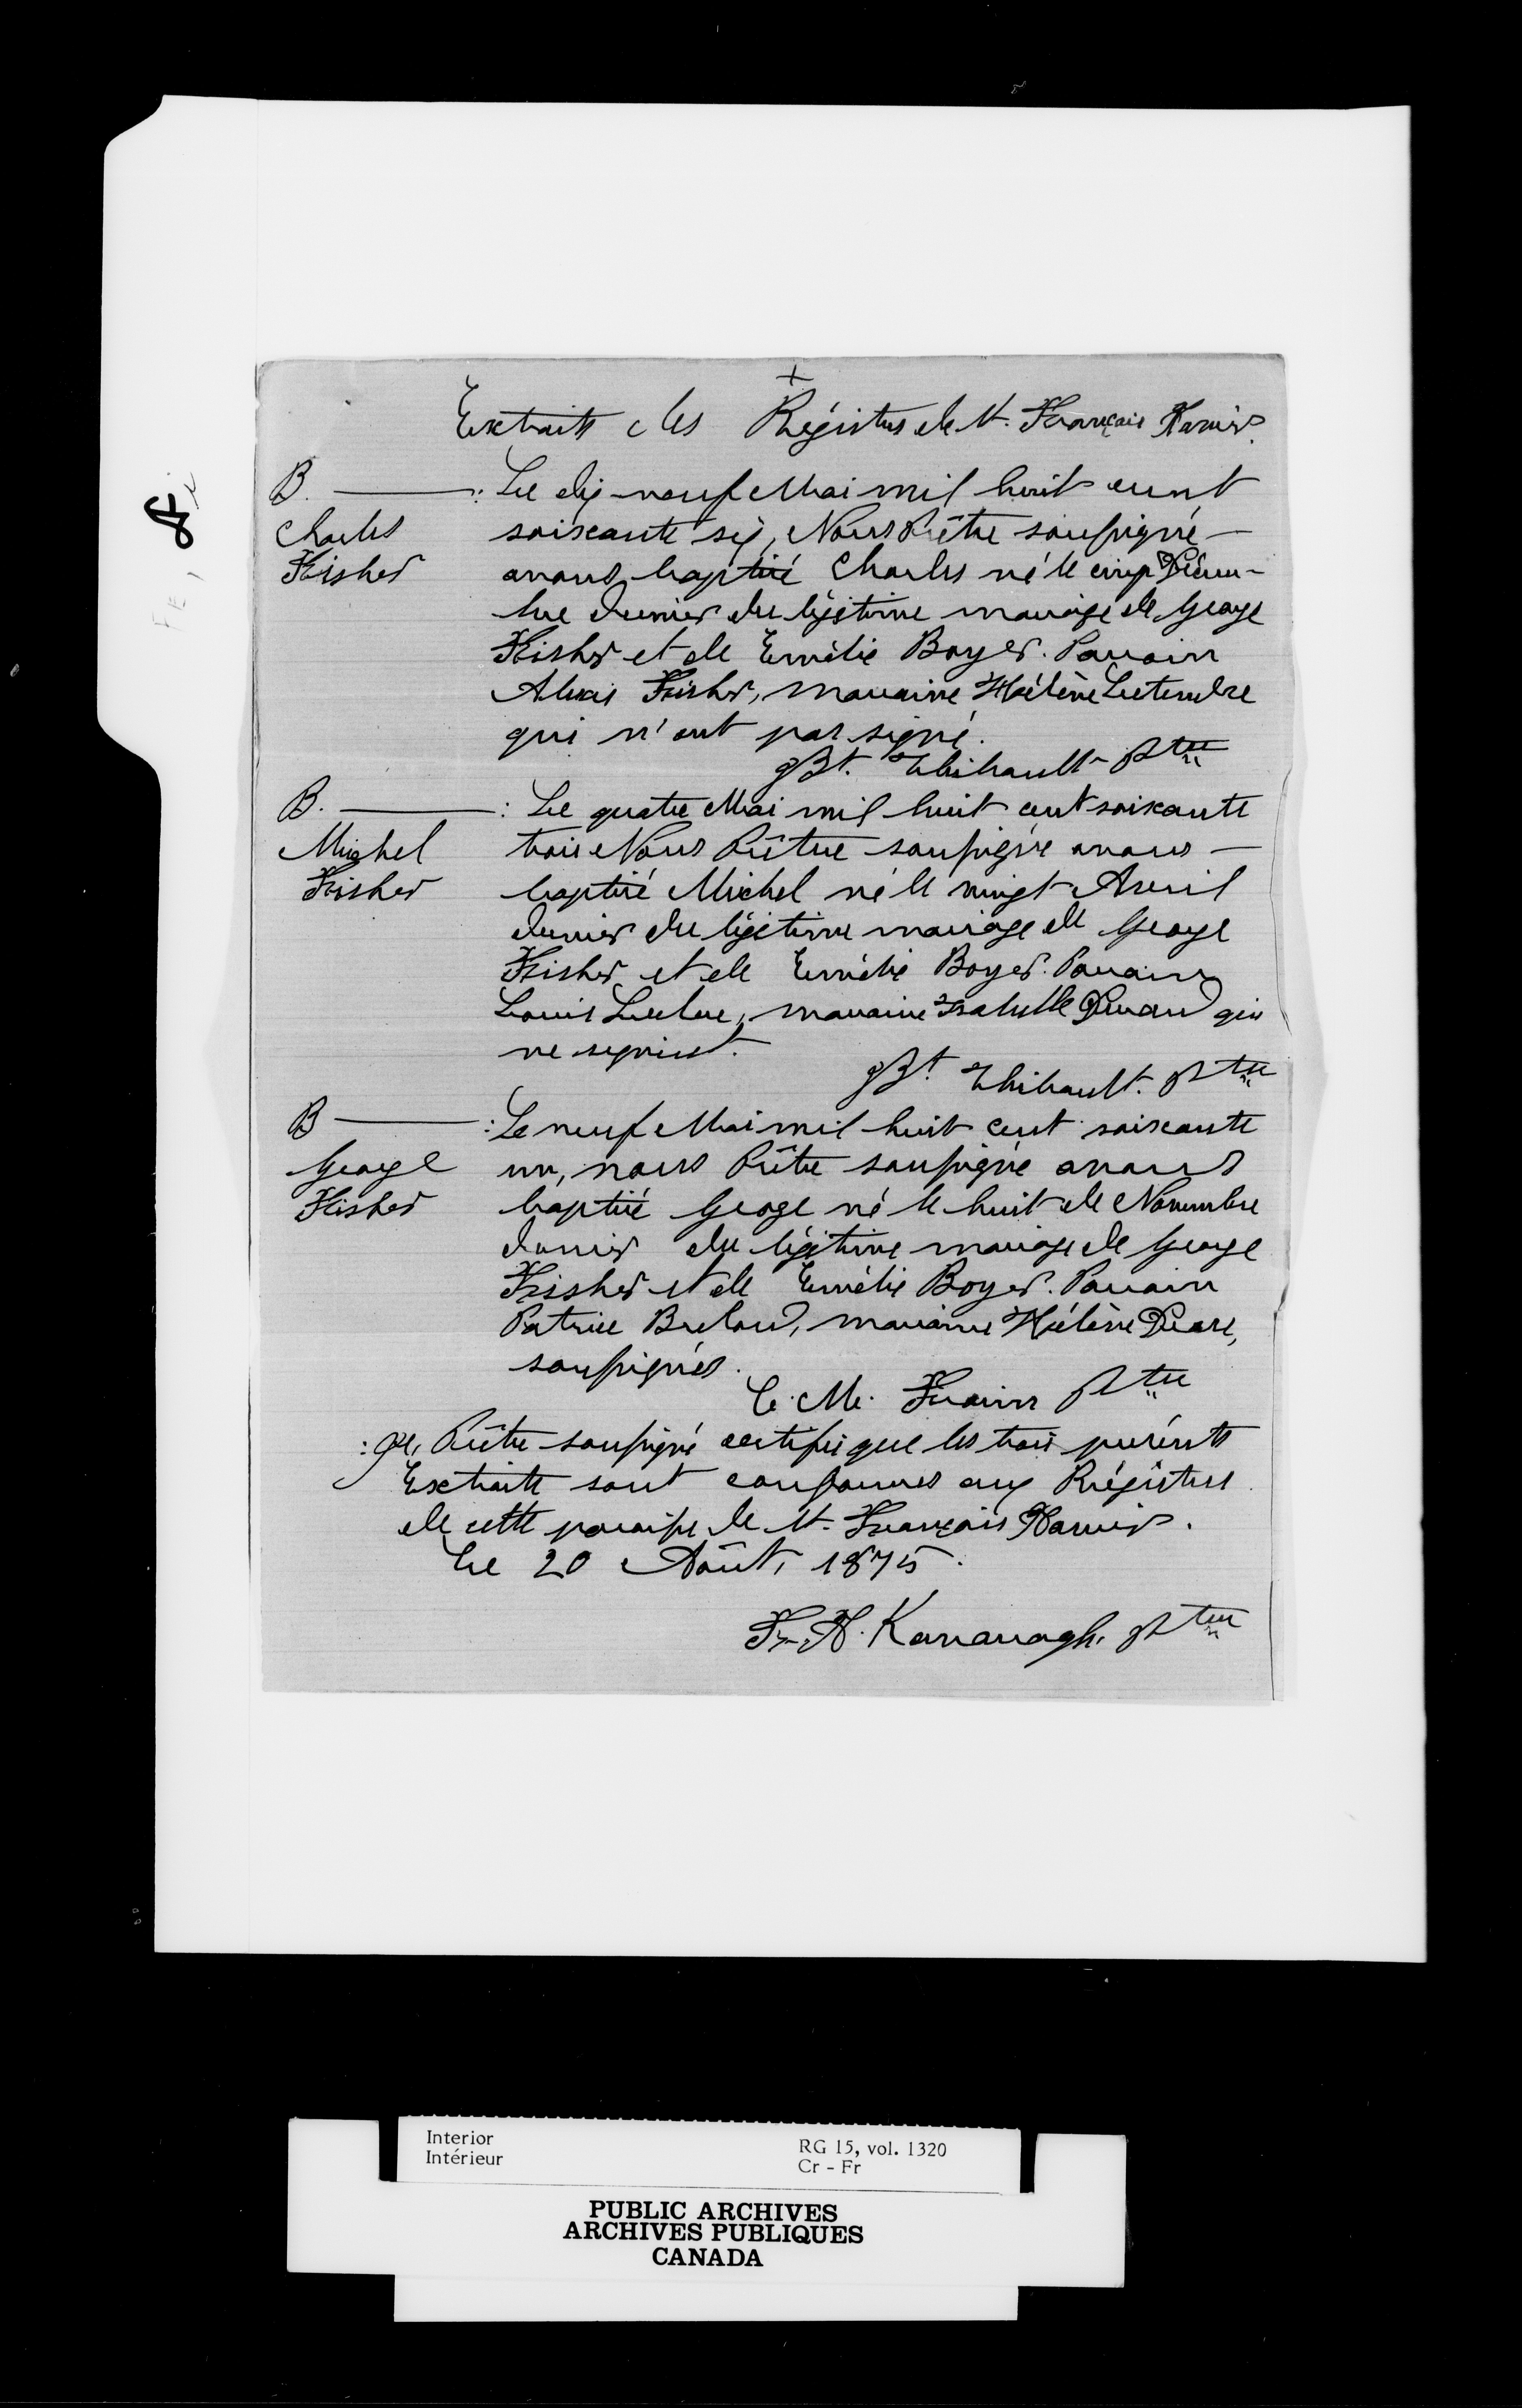 +
Extraits des Régistres de St. François Xavier.
B. —— : Le dix-neuf Mai mil huit cent
Charles soixante six, Nous Prêtre soussigné —
Fisher avons baptisé Charles né le cinq Décem-
bre dernier du légitime mariage de George
Fisher et de Emélie Boyer. Parrain
Alexis Fisher, marraine Hélène Letendre
qui n'ont pas signé.
JBt. Thibault Ptre
B. —— : Le quatre Mai mil huit cent soixante
Michel trois Nous Prêtre soussigné avons —
Fisher baptisé Michel né le vingt Avril
dernier du légitime mariage de George
Fisher et de Emélie Boyer. Parrain
Louis Leclerc, marraine Isabelle qui
ne signent.
JBt. Thibault. Ptre
B —— : Le neuf Mai mil huit cent soixante
George un, nous Prêtre soussigné avons
Fisher baptisé George né le huit de Novembre
dernier du légitime mariage de George
Fisher et de Emélie Boyer. Parrain
Patrice Breland, marraine Hélène Dease,
soussignés.
C. M. Frain Ptre
: Je, Prêtre soussigné certifie que les trois présents
Extraits sont conformes aux Régistres
de cette paroisse de St. François Xavier.
Ce 20 Août, 1875.
F. X. Kavanagh, Ptre
Interior
Intérieur
RG 15, vol. 1320
Cr - Fr
PUBLIC ARCHIVES
ARCHIVES PUBLIQUES
CANADA